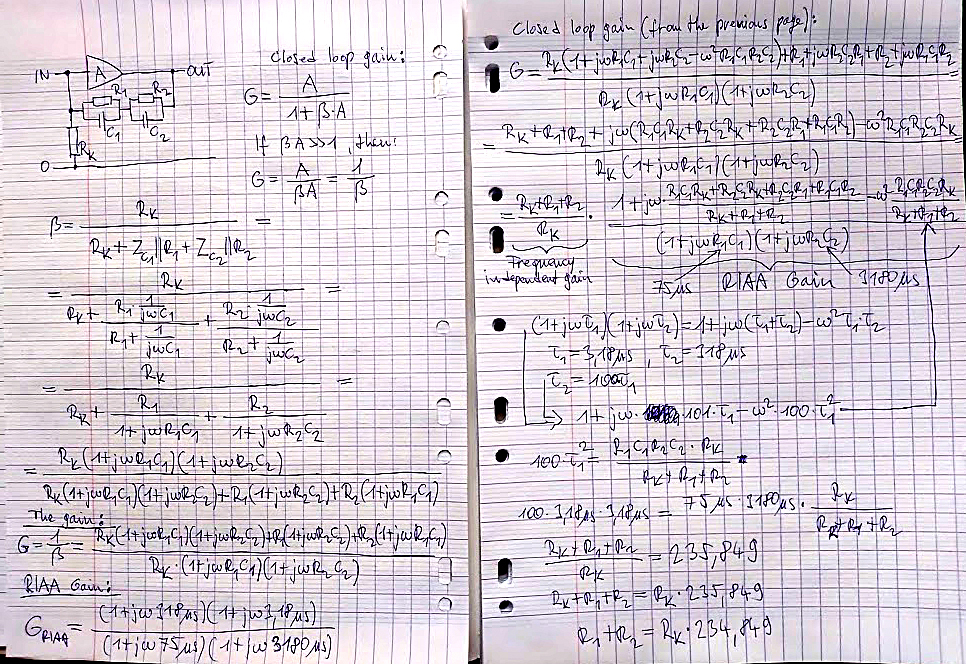 IN
A
OUT
R₁
R₂
C₁
C₂
R_K
0
Closed loop gain:
G = A / (1+β·A)
If βA>>1, then:
G = A / βA = 1 / β
β = R_K / (R_K + Z_C₁||R₁ + Z_C₂||R₂) =
= R_K / (R_K + (R₁·1/(jωC₁)) / (R₁ + 1/(jωC₁)) + (R₂·1/(jωC₂)) / (R₂ + 1/(jωC₂))) =
= R_K / (R_K + R₁/(1+jωR₁C₁) + R₂/(1+jωR₂C₂)) =
= R_K(1+jωR₁C₁)(1+jωR₂C₂) / (R_K(1+jωR₁C₁)(1+jωR₂C₂)+R₁(1+jωR₂C₂)+R₂(1+jωR₁C₁))
The gain:
G = 1/β = (R_K(1+jωR₁C₁)(1+jωR₂C₂)+R₁(1+jωR₂C₂)+R₂(1+jωR₁C₁)) / (R_K·(1+jωR₁C₁)(1+jωR₂C₂))
RIAA Gain:
G_RIAA = (1+jω318μs)(1+jω3,18μs) / ((1+jω75μs)(1+jω3180μs))
Closed loop gain (from the previous page):
G = (R_K(1+jωR₁C₁+jωR₂C₂-ω²R₁C₁R₂C₂)+R₁+jωR₂C₂R₁+R₂+jωR₁C₁R₂) / (R_K(1+jωR₁C₁)(1+jωR₂C₂))
= (R_K+R₁+R₂+jω(R₁C₁R_K+R₂C₂R_K+R₂C₂R₁+R₁C₁R₂)-ω²R₁C₁R₂C₂R_K) / (R_K(1+jωR₁C₁)(1+jωR₂C₂))
= (R_K+R₁+R₂)/R_K · (1+jω·(R₁C₁R_K+R₂C₂R_K+R₂C₂R₁+R₁C₁R₂)/(R_K+R₁+R₂) -ω²·(R₁C₁R₂C₂R_K)/(R_K+R₁+R₂)) / ((1+jωR₁C₁)(1+jωR₂C₂))
Frequency
independent gain
75μs
RIAA Gain
3180μs
(1+jωτ₁)(1+jωτ₂)=1+jω(τ₁+τ₂)-ω²τ₁·τ₂
τ₁=3,18μs, τ₂=318μs
τ₂=100τ₁
1+jω·101·τ₁-ω²·100·τ₁²
100·τ₁² = R₁C₁R₂C₂·R_K / (R_K+R₁+R₂)
100·3,18μs·3,18μs = 75μs·3180μs· R_K / (R_K+R₁+R₂)
(R_K+R₁+R₂) / R_K = 235,849
R_K+R₁+R₂=R_K·235,849
R₁+R₂=R_K·234,849